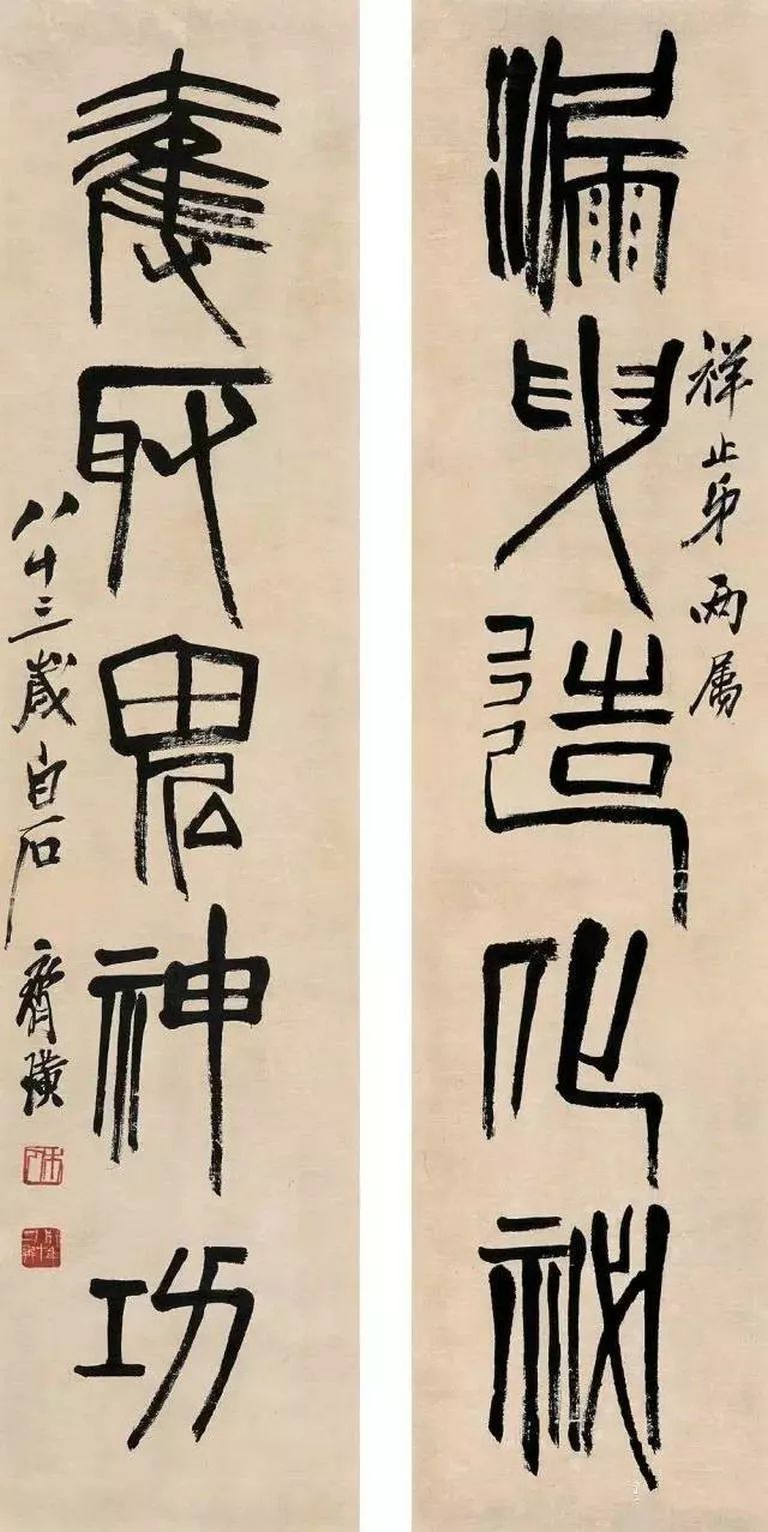 漏曳造化秘
祥止弟两属
奪取鬼神功
八十三歲白石齊璜
木人